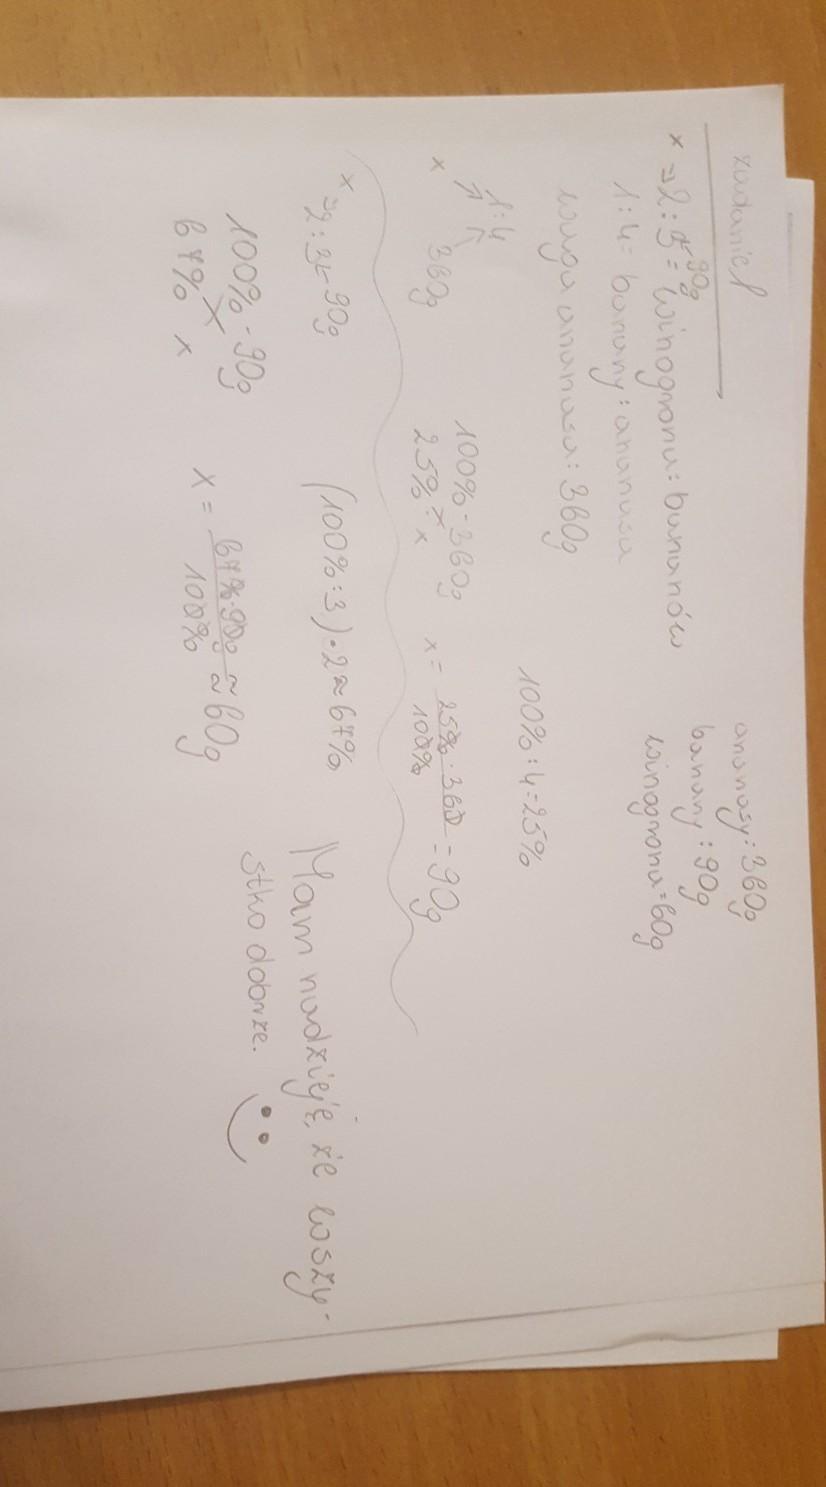 zadanie 1
90g
x → 2 : 3 = winogrona : bananów
1 : 4 = banany : ananasa
waga ananasa : 360g
ananasy : 360g
banany : 90g
winogrona = 60g
1 : 4
x 360g
100% : 4 = 25%
100% - 360g
25% - x
x = 25% · 360 / 100% = 90g
x → 2 : 3 ← 90g
(100% : 3) · 2 ≈ 67%
100% - 90g
67% x
x = 67% · 90g / 100% ≈ 60g
Mam nadzieję, że wszy-
stko dobrze. :)